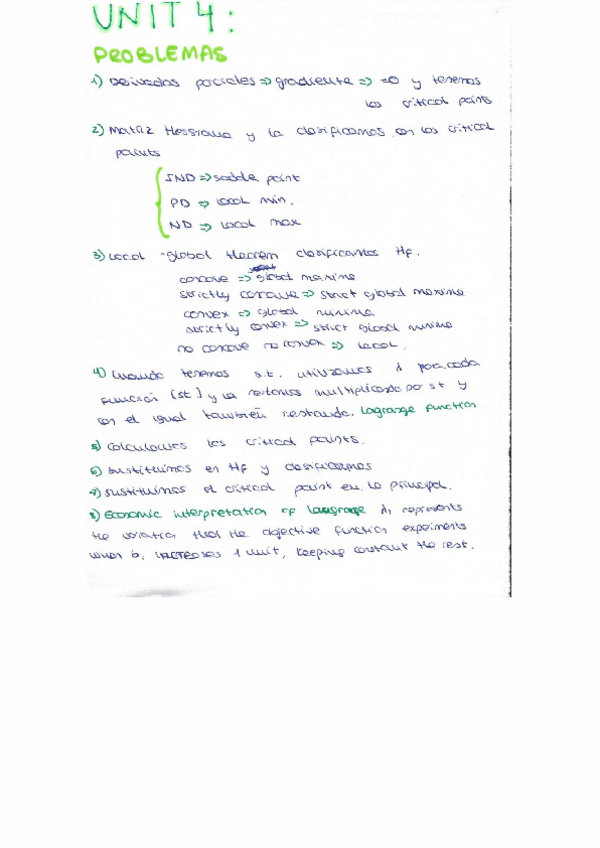 UNIT 4:
PROBLEMAS
1) Derivadas parciales => gradiente => =0 y tenemos
los critical points
2) Matriz Hessiana y la clasificamos en los critical
points
IND => saddle point
PD => local min.
ND => local max
3) Local-global theorem clasificamos Hf.
concave => global maxima
strictly concave => strict global maxima
convex => global minima
strictly convex => strict global minima
no concave no convex => local.
4) Cuando tenemos s.t. utilizamos λ por cada
función (st) y la restamos multiplicado por st y
con el igual también restando. Lagrange function
5) Calculamos los critical points.
6) Sustituimos en Hf y clasificamos
7) Sustituimos el critical point en la principal.
8) Economic interpretation of Langrage λ, represents
the variation that the objective function experiments
when b, increases 1 unit, keeping constant the rest.